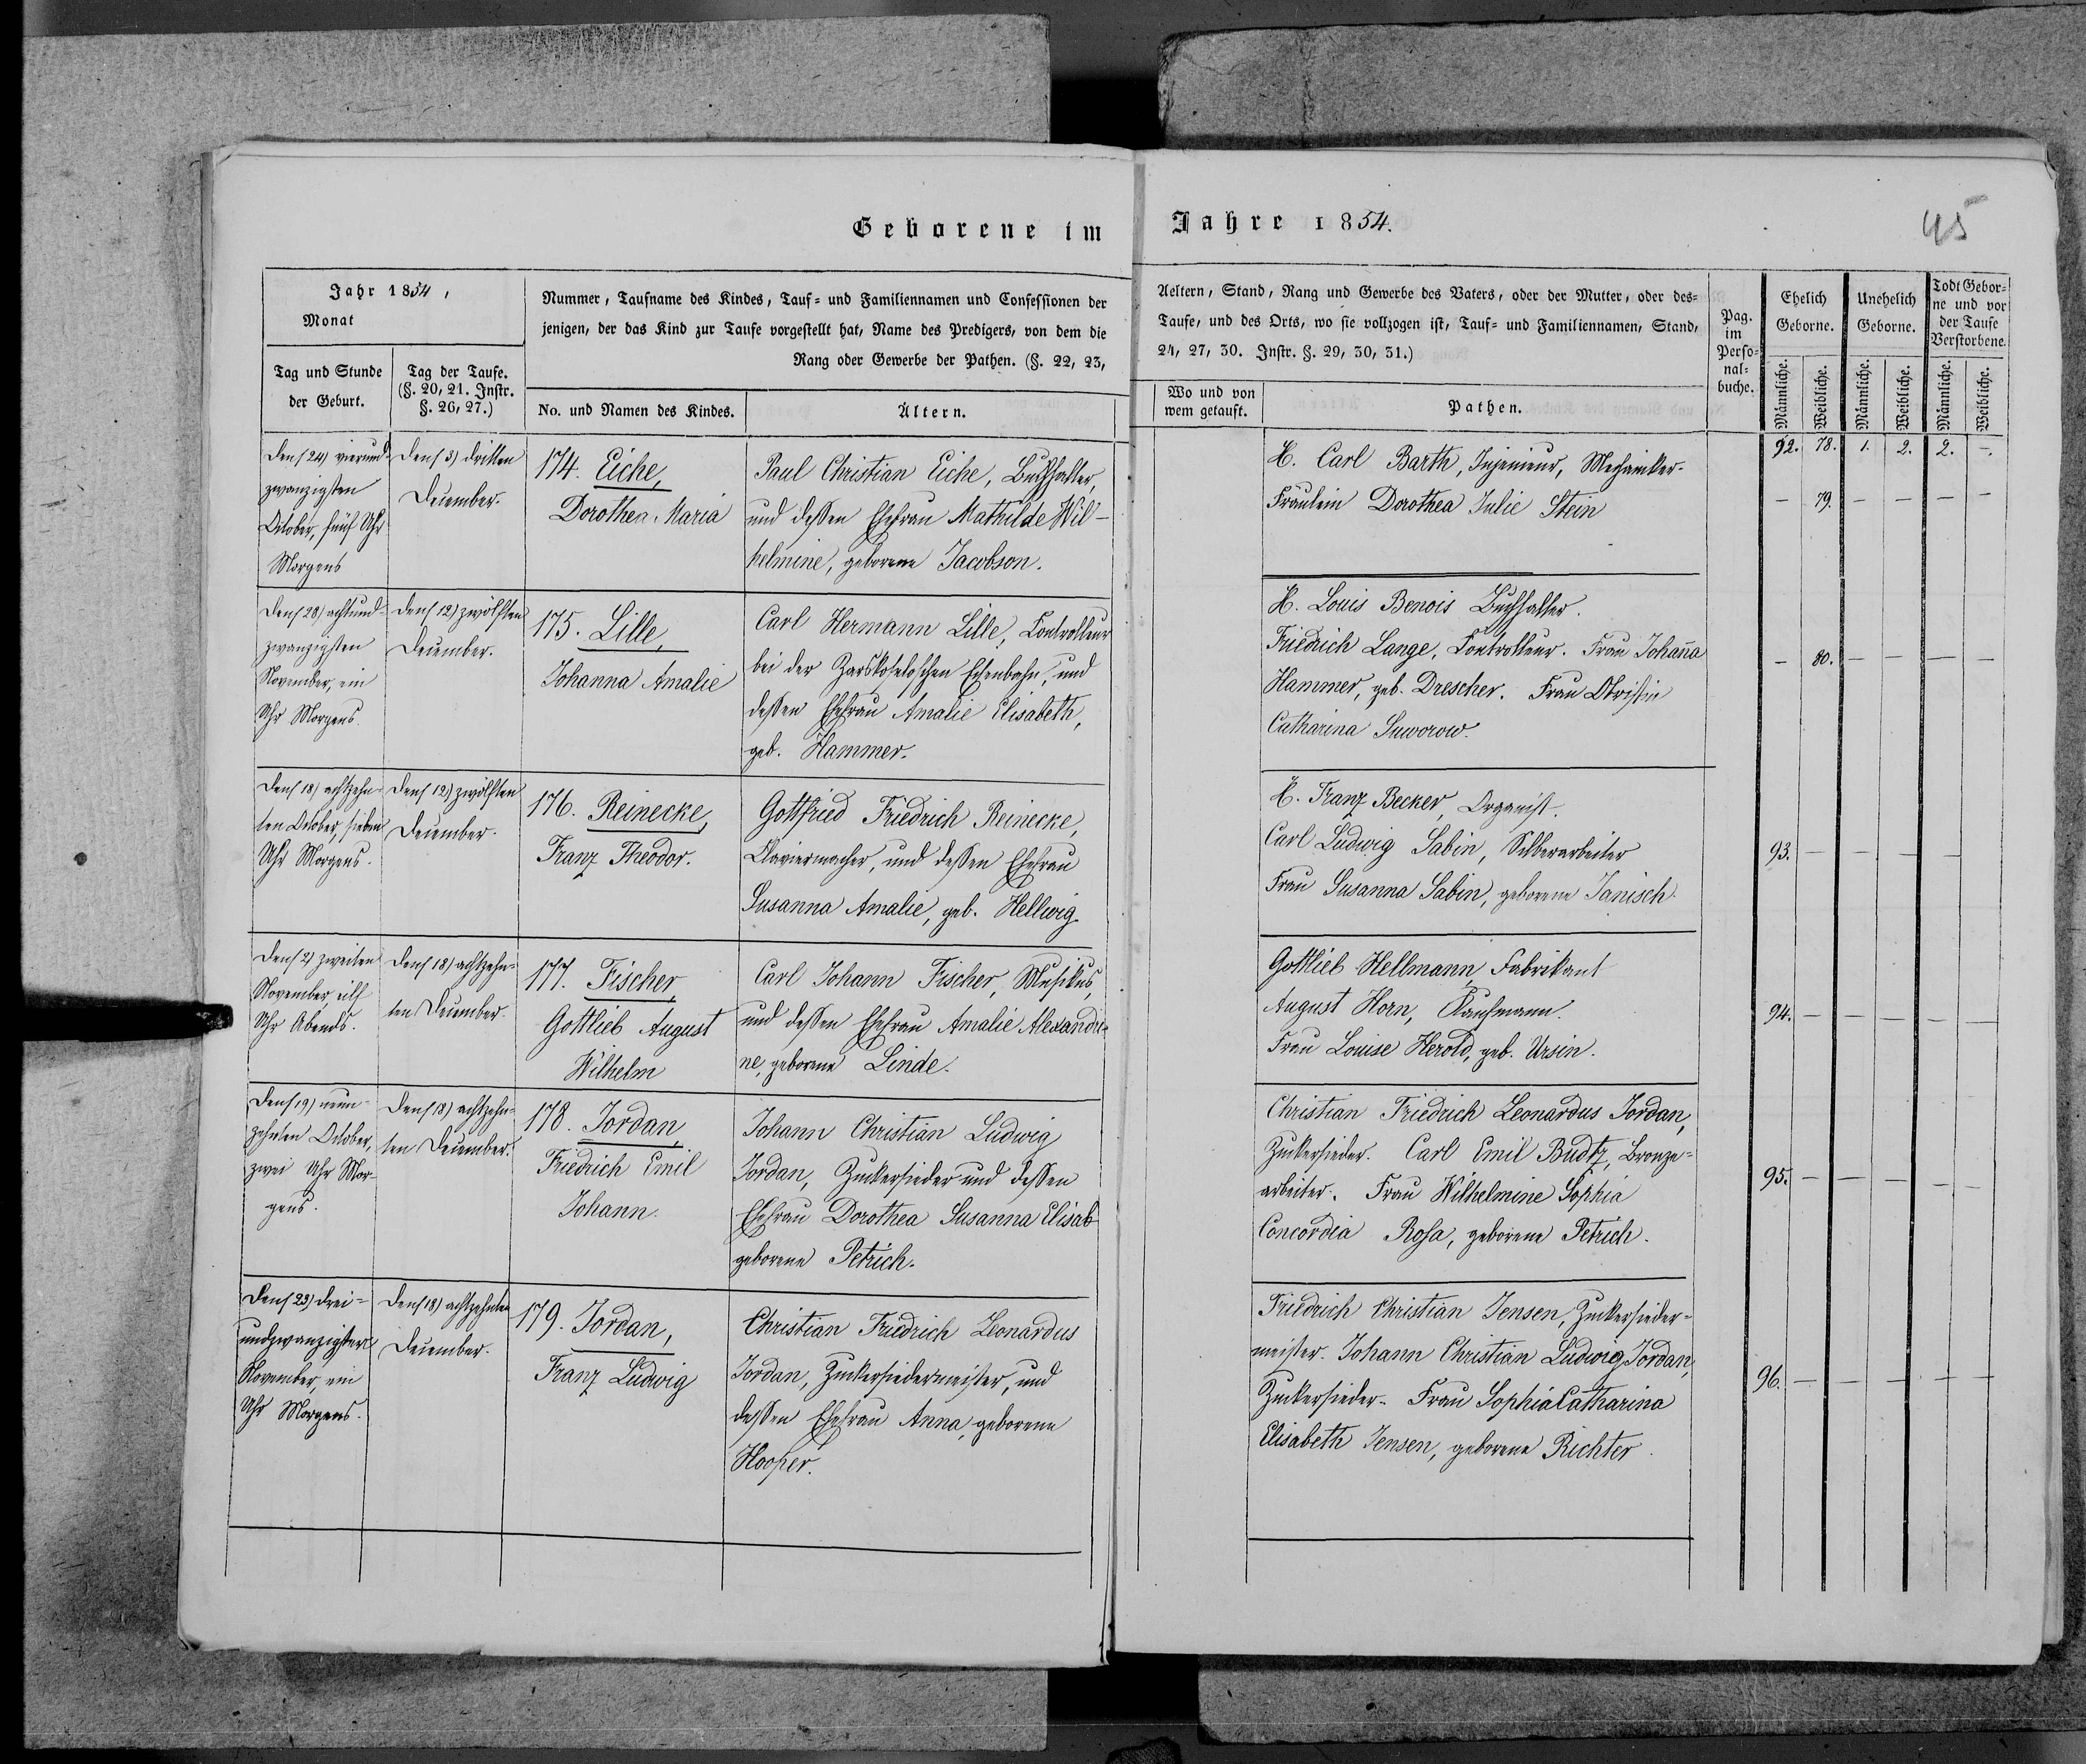 Geborene im
Jahre 1854.
45
Jahr 1854,
Monat
Tag und Stunde
der Geburt.
Tag der Taufe.
(§. 20, 21. Instr.
§. 26, 27.)
Nummer, Taufname des Kindes, Tauf- und Familiennamen und Confessionen der
jenigen, der das Kind zur Taufe vorgestellt hat, Name des Predigers, von dem die
Rang oder Gewerbe der Pathen. (§. 22, 23,
No. und Namen des Kindes.
Ältern.
Aeltern, Stand, Rang und Gewerbe des Vaters, oder der Mutter, oder des-
Taufe, und des Orts, wo sie vollzogen ist, Tauf- und Familiennamen, Stand,
24, 27, 30. Instr. §. 29, 30, 31.)
Wo und von
wem getauft.
Pathen.
Pag.
im
Perso-
nal-
buche.
Ehelich
Geborne.
Unehelich
Geborne.
Todt Gebor-
ne und vor
der Taufe
Verstorbene.
Männliche.
Weibliche.
Männliche.
Weibliche.
Männliche.
Weibliche.
92. 78. 1. 2. 2. –.
Den (24) vierund-
zwanzigsten
October, fünf Uhr
Morgens
Den (3) dritten
December.
174. Eiche,
Dorothea Maria
Paul Christian Eiche, Buchhalter,
und dessen Ehefrau Mathilde Wil-
helmine, geborene Jacobson.
H. Carl Barth, Injenieur, Mechaniker.
Fräulein Dorothea Julie Stein
– 79. – – – –
Den (28) achtund-
zwanzigsten
November, ein
Uhr Morgens.
Den (12) zwölften
December.
175. Lille,
Johanna Amalie
Carl Hermann Lille, Controlleur
bei der Zarskoseloschen Eisenbahn, und
dessen Ehefrau Amalie Elisabeth,
geb. Hammer.
H. Louis Benois Buchhalter.
Friedrich Lange, Controlleur. Frau Johan̄a
Hammer, geb. Drescher. Frau Obristin
Catharina Suworow
– 80. – – – –
Den (18) achtzehn-
ten October, sieben
Uhr Morgens.
Den (12) zwölften
December.
176. Reinecke,
Franz Theodor.
Gottfried Friedrich Reinecke,
Klaviermacher, und dessen Ehefrau
Susanna Amalie, geb. Hellwig.
H. Franz Becker, Organist.
Carl Ludwig Sabin, Silberarbeiter
Frau Susanna Sabin, geborene Janisch.
93. – – – –
Den (2) zweiten
November, eilf
Uhr Abends.
Den (18) achtzehn-
ten December.
177. Fischer
Gottlieb August
Wilhelm
Carl Johann Fischer, Musikus,
und dessen Ehefrau Amalie Alexandri-
ne, geborene Linde.
Gottlieb Hellmann, Fabrikant
August Horn, Kaufmann.
Frau Louise Herold, geb. Ursin.
94. – – – – –
Den (19) neun-
zehnten October,
zwei Uhr Mor-
gens.
Den (18) achtzehn-
ten December.
178. Jordan,
Friedrich Emil
Johann.
Johann Christian Ludwig
Jordan, Zuckersieder und dessen
Ehefrau Dorothea Susanna Elisab
geborene Petrich.
Christian Friedrich Leonardus Jordan,
Zuckersieder. Carl Emil Budtz, Bronze-
arbeiter. Frau Wilhelmine Sophia
Concordia Rosa, geborene Petrich.
95. – – – – –
Den (23) drei-
undzwanzigsten
November, ein
Uhr Morgens.
Den (18) achtzehnten
December.
179. Jordan,
Franz Ludwig
Christian Friedrich Leonardus
Jordan, Zuckersiedermeister, und
dessen Ehefrau Anna, geborene
Hooper.
Friedrich Christian Jensen, Zuckersieder-
meister. Johann Christian Ludwig Jordan,
Zuckersieder. Frau Sophia Catharina
Elisabeth Jensen, geborene Richter.
96. – – – – –